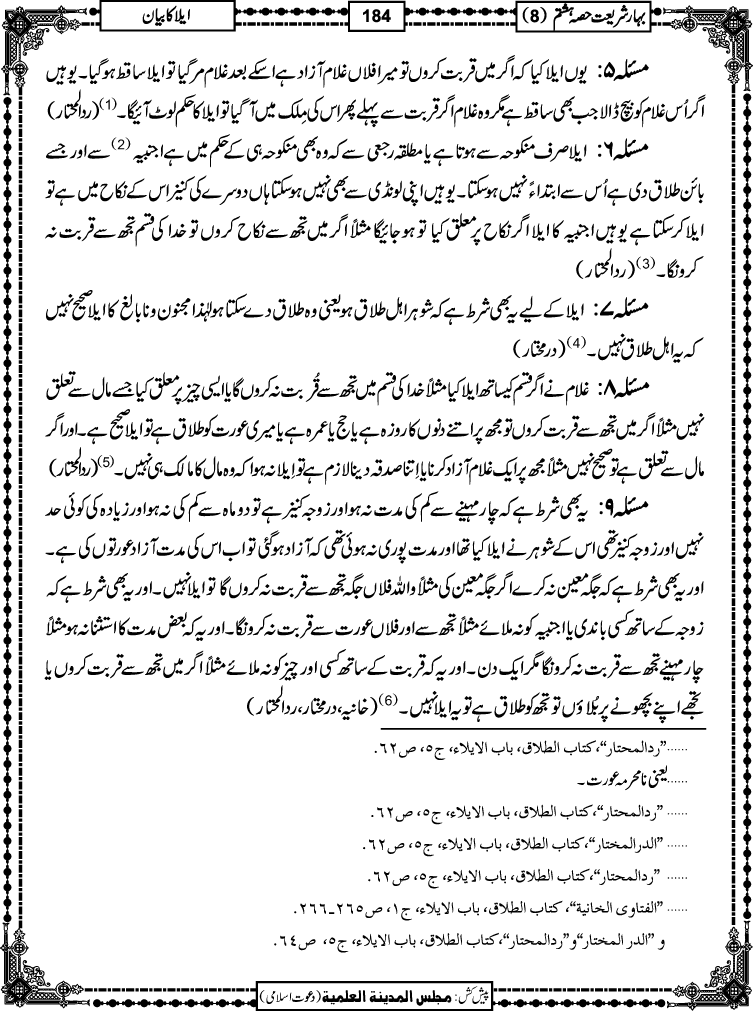 بہار شریعت حصہ ہشتم (8)
184
ایلا کا بیان
مسئلہ ۵: یوں ایلا کیا کہ اگر میں قربت کروں تو میرا فلاں غلام آزاد ہے اسکے بعد غلام مر گیا تو ایلا ساقط ہوگیا۔ یوہیں
اگر اُس غلام کو بیچ ڈالا جب بھی ساقط ہے مگر وہ غلام اگر قربت سے پہلے پھر اس کی مِلک میں آگیا تو ایلا کا حکم لوٹ آئیگا۔(1) (ردالمحتار)
مسئلہ ۶: ایلا صرف منکوحہ سے ہوتا ہے یا مطلقہ رجعی سے کہ وہ بھی منکوحہ ہی کے حکم میں ہے اجنبیہ(2) سے اور جسے
بائن طلاق دی ہے اُس سے ابتداءً نہیں ہوسکتا۔ یوہیں اپنی لونڈی سے بھی نہیں ہوسکتا ہاں دوسرے کی کنیز اس کے نکاح میں ہے تو
ایلا کرسکتا ہے یوہیں اجنبیہ کا ایلا اگر نکاح پر معلق کیا تو ہو جائیگا مثلاً اگر میں تجھ سے نکاح کروں تو خدا کی قسم تجھ سے قربت نہ
کرونگا۔(3) (ردالمحتار)
مسئلہ ۷: ایلا کے لیے یہ بھی شرط ہے کہ شوہر اہل طلاق ہو یعنی وہ طلاق دے سکتا ہو لہٰذا مجنون و نابالغ کا ایلا صحیح نہیں
کہ یہ اہل طلاق نہیں۔(4) (درمختار)
مسئلہ ۸: غلام نے اگر قسم کیساتھ ایلا کیا مثلاً خدا کی قسم میں تجھ سے قُربت نہ کروں گا یا ایسی چیز پر معلق کیا جسے مال سے تعلق
نہیں مثلاً اگر میں تجھ سے قربت کروں تو مجھ پر اتنے دنوں کا روزہ ہے یا حج یا عمرہ ہے یا میری عورت کو طلاق ہے تو ایلا صحیح ہے۔ اور اگر
مال سے تعلق ہے تو صحیح نہیں مثلاً مجھ پر ایک غلام آزاد کرنا یا اِتنا صدقہ دینا لازم ہے تو ایلا نہ ہوا کہ وہ مال کا مالک ہی نہیں۔(5) (ردالمحتار)
مسئلہ ۹: یہ بھی شرط ہے کہ چار مہینے سے کم کی مدت نہ ہو اور زوجہ کنیز ہے تو دو ماہ سے کم کی نہ ہو اور زیادہ کی کوئی حد
نہیں اور زوجہ کنیز تھی اس کے شوہر نے ایلا کیا تھا اور مدت پوری نہ ہوئی تھی کہ آزاد ہوگئی تو اب اس کی مدت آزاد عورتوں کی ہے۔
اور یہ بھی شرط ہے کہ جگہ معین نہ کرے اگر جگہ معین کی مثلاً واللہ فلاں جگہ تجھ سے قربت نہ کروں گا تو ایلا نہیں۔ اور یہ بھی شرط ہے کہ
زوجہ کے ساتھ کسی باندی یا اجنبیہ کو نہ ملائے مثلاً تجھ سے اور فلاں عورت سے قربت نہ کرونگا۔ اور یہ کہ بعض مدت کا استثنا نہ ہو مثلاً
چار مہینے تجھ سے قربت نہ کرونگا مگر ایک دن۔ اور یہ کہ قربت کے ساتھ کسی اور چیز کو نہ ملائے مثلاً اگر میں تجھ سے قربت کروں یا
تجھے اپنے بچھونے پر بُلاؤں تو تجھ کو طلاق ہے تو یہ ایلا نہیں۔(6) (خانیہ، درمختار، ردالمحتار)
......”ردالمحتار“، کتاب الطلاق، باب الایلاء، ج۵، ص٦٢.
......یعنی نامحرمہ عورت۔
...... ”ردالمحتار“، کتاب الطلاق، باب الایلاء، ج۵، ص٦٢.
...... ”الدرالمختار“، کتاب الطلاق، باب الایلاء، ج۵، ص٦٢.
...... ”ردالمحتار“، کتاب الطلاق، باب الایلاء، ج۵، ص٦٢.
...... ”الفتاوی الخانية“، کتاب الطلاق، باب الایلاء، ج١، ص٢٦٥-٢٦٦.
و ”الدر المختار“ و ”ردالمحتار“، کتاب الطلاق، باب الایلاء، ج۵، ص٦٤.
پیش کش: مجلس المدینة العلمیة (دعوت اسلامی)